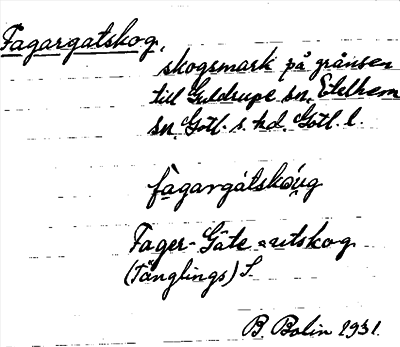 Fagargatskog,
skogsmark på gränsen
till Guldrupe sn. Etelhem
sn. Gotl. s. hd. Gotl. l.
fagargátskóug
Fager-Gäte
(Tänglings) S.
B. Bolin 1931.